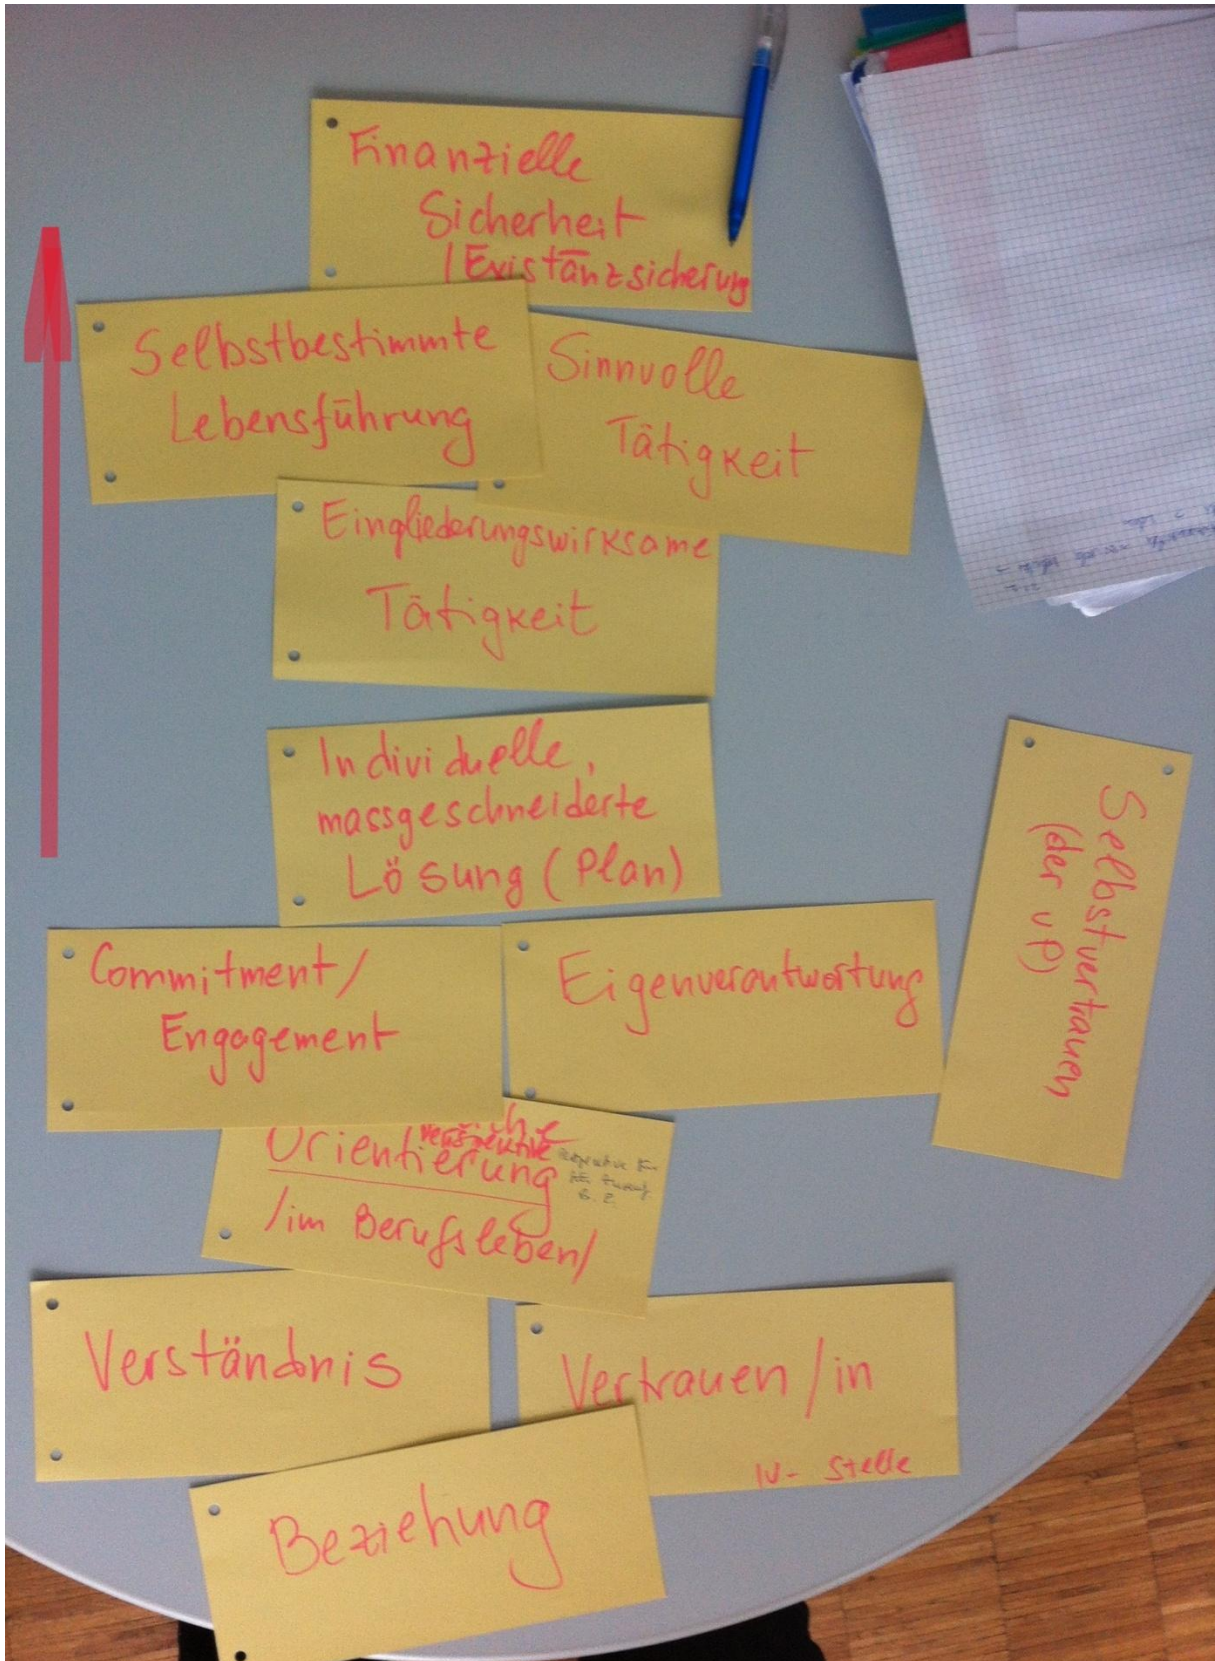 Finanzielle
Sicherheit
/Existänzsicherung
Selbstbestimmte
Lebensführung
Sinnvolle
Tätigkeit
Eingliederungswirksame
Tätigkeit
Individuelle,
massgeschneiderte
Lösung (Plan)
Selbstvertrauen
(der vP)
Commitment/
Engagement
Eigenverantwortung
Perspektive
Orientierung
/im Berufsleben/
Verständnis
Vertrauen/in
IV-Stelle
Beziehung